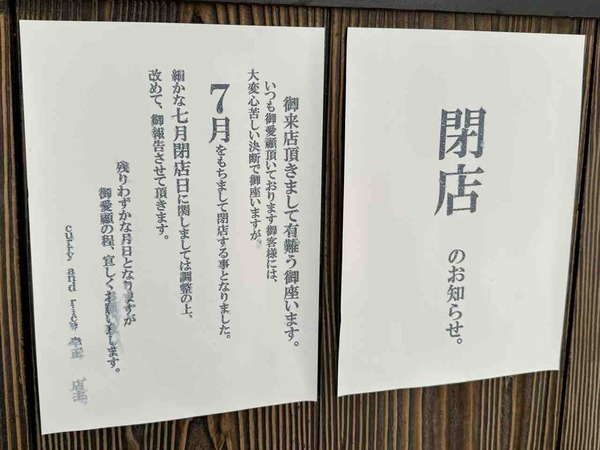 閉店
のお知らせ。
御来店頂きまして有難う御座います。
いつも御愛顧頂いております御客様には、
大変心苦しい決断で御座いますが
7月をもちまして閉店する事となりました。
細かな七月閉店日に関しましては調整の上、
改めて、御報告させて頂きます。
残りわずかな月日となりますが
御愛顧の程、宜しくお願い致します。
curry and rice 店主